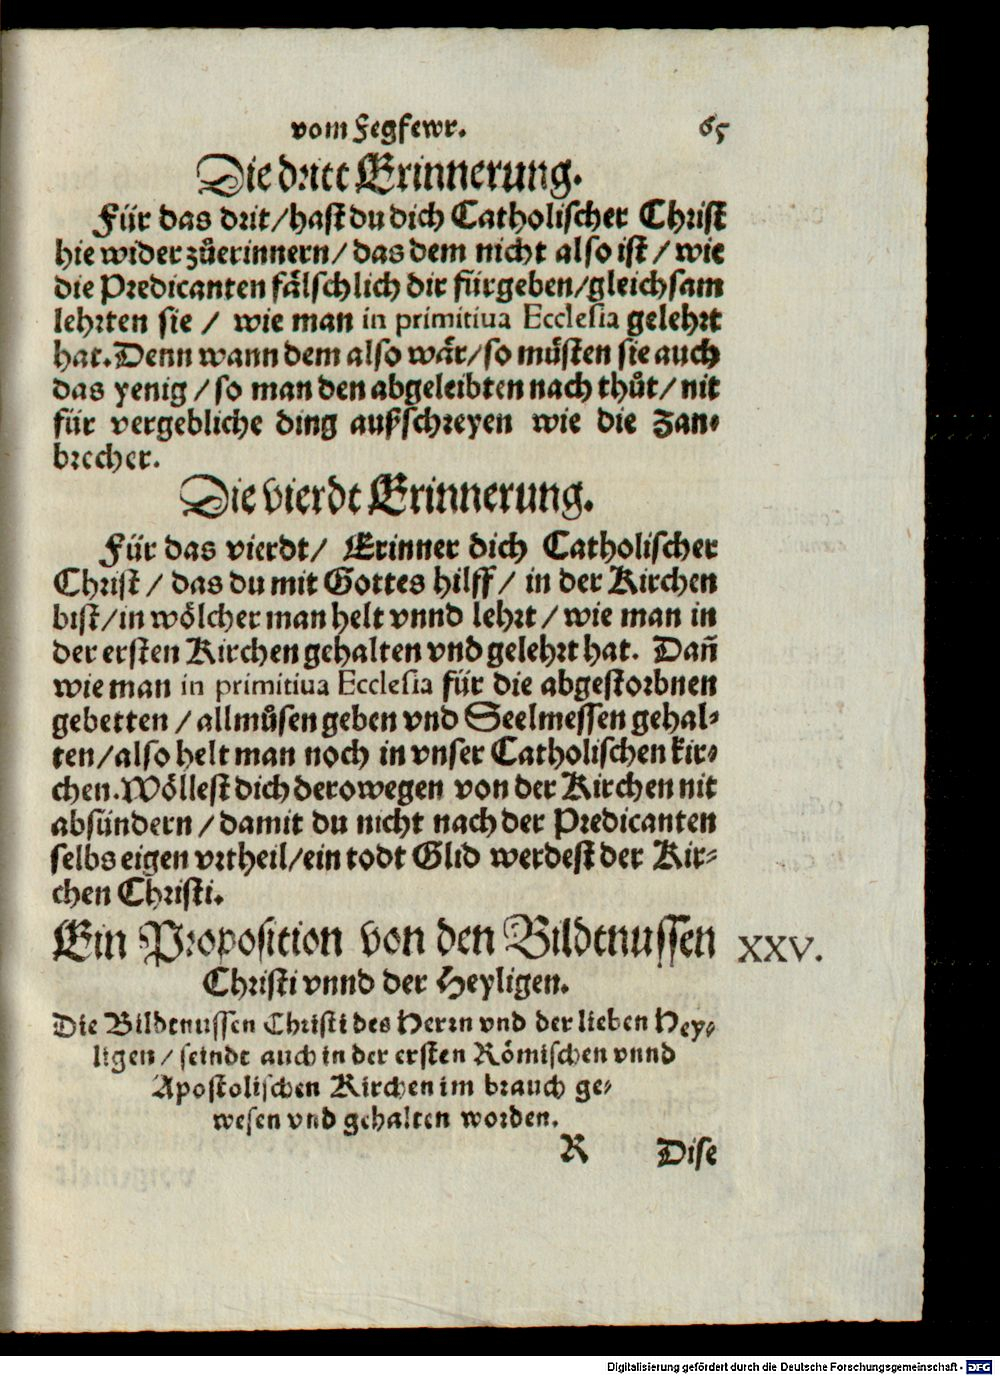 vom Fegfewr. 65
Die dritt Erinnerung.
Für das drit/hast du dich Catholischer Christ
hie wider zůerinnern/das dem nicht also ist/wie
die Predicanten fälschlich dir fürgeben/gleichsam
lehrten sie / wie man in primitiua Ecclesia gelehrt
hat. Denn wann dem also wär/so müsten sie auch
das yenig/so man den abgeleibten nach thůt/nit
für vergebliche ding außschreyen wie die Zan-
brecher.
Die vierdt Erinnerung.
Für das vierdt/ Erinner dich Catholischer
Christ / das du mit Gottes hilff/ in der Kirchen
bist/in wölcher man helt vnnd lehrt/wie man in
der ersten Kirchen gehalten vnd gelehrt hat. Dañ
wie man in primitiua Ecclesia für die abgestorbnen
gebetten / allmůsen geben vnd Seelmessen gehal-
ten/also helt man noch in vnser Catholischen kir-
chen. Wöllest dich derowegen von der Kirchen nit
absündern/damit du nicht nach der Predicanten
selbs eigen vrtheil/ein todt Glid werdest der Kir-
chen Christi.
Ein Proposition von den Bildtnussen XXV.
Christi vnnd der Heyligen.
Die Bildtnussen Christi des Herrn vnd der lieben Hey-
ligen/ seindt auch in der ersten Römischen vnnd
Apostolischen Kirchen im brauch ge-
wesen vnd gehalten worden.
R Dise
Digitalisierung gefördert durch die Deutsche Forschungsgemeinschaft - DFG